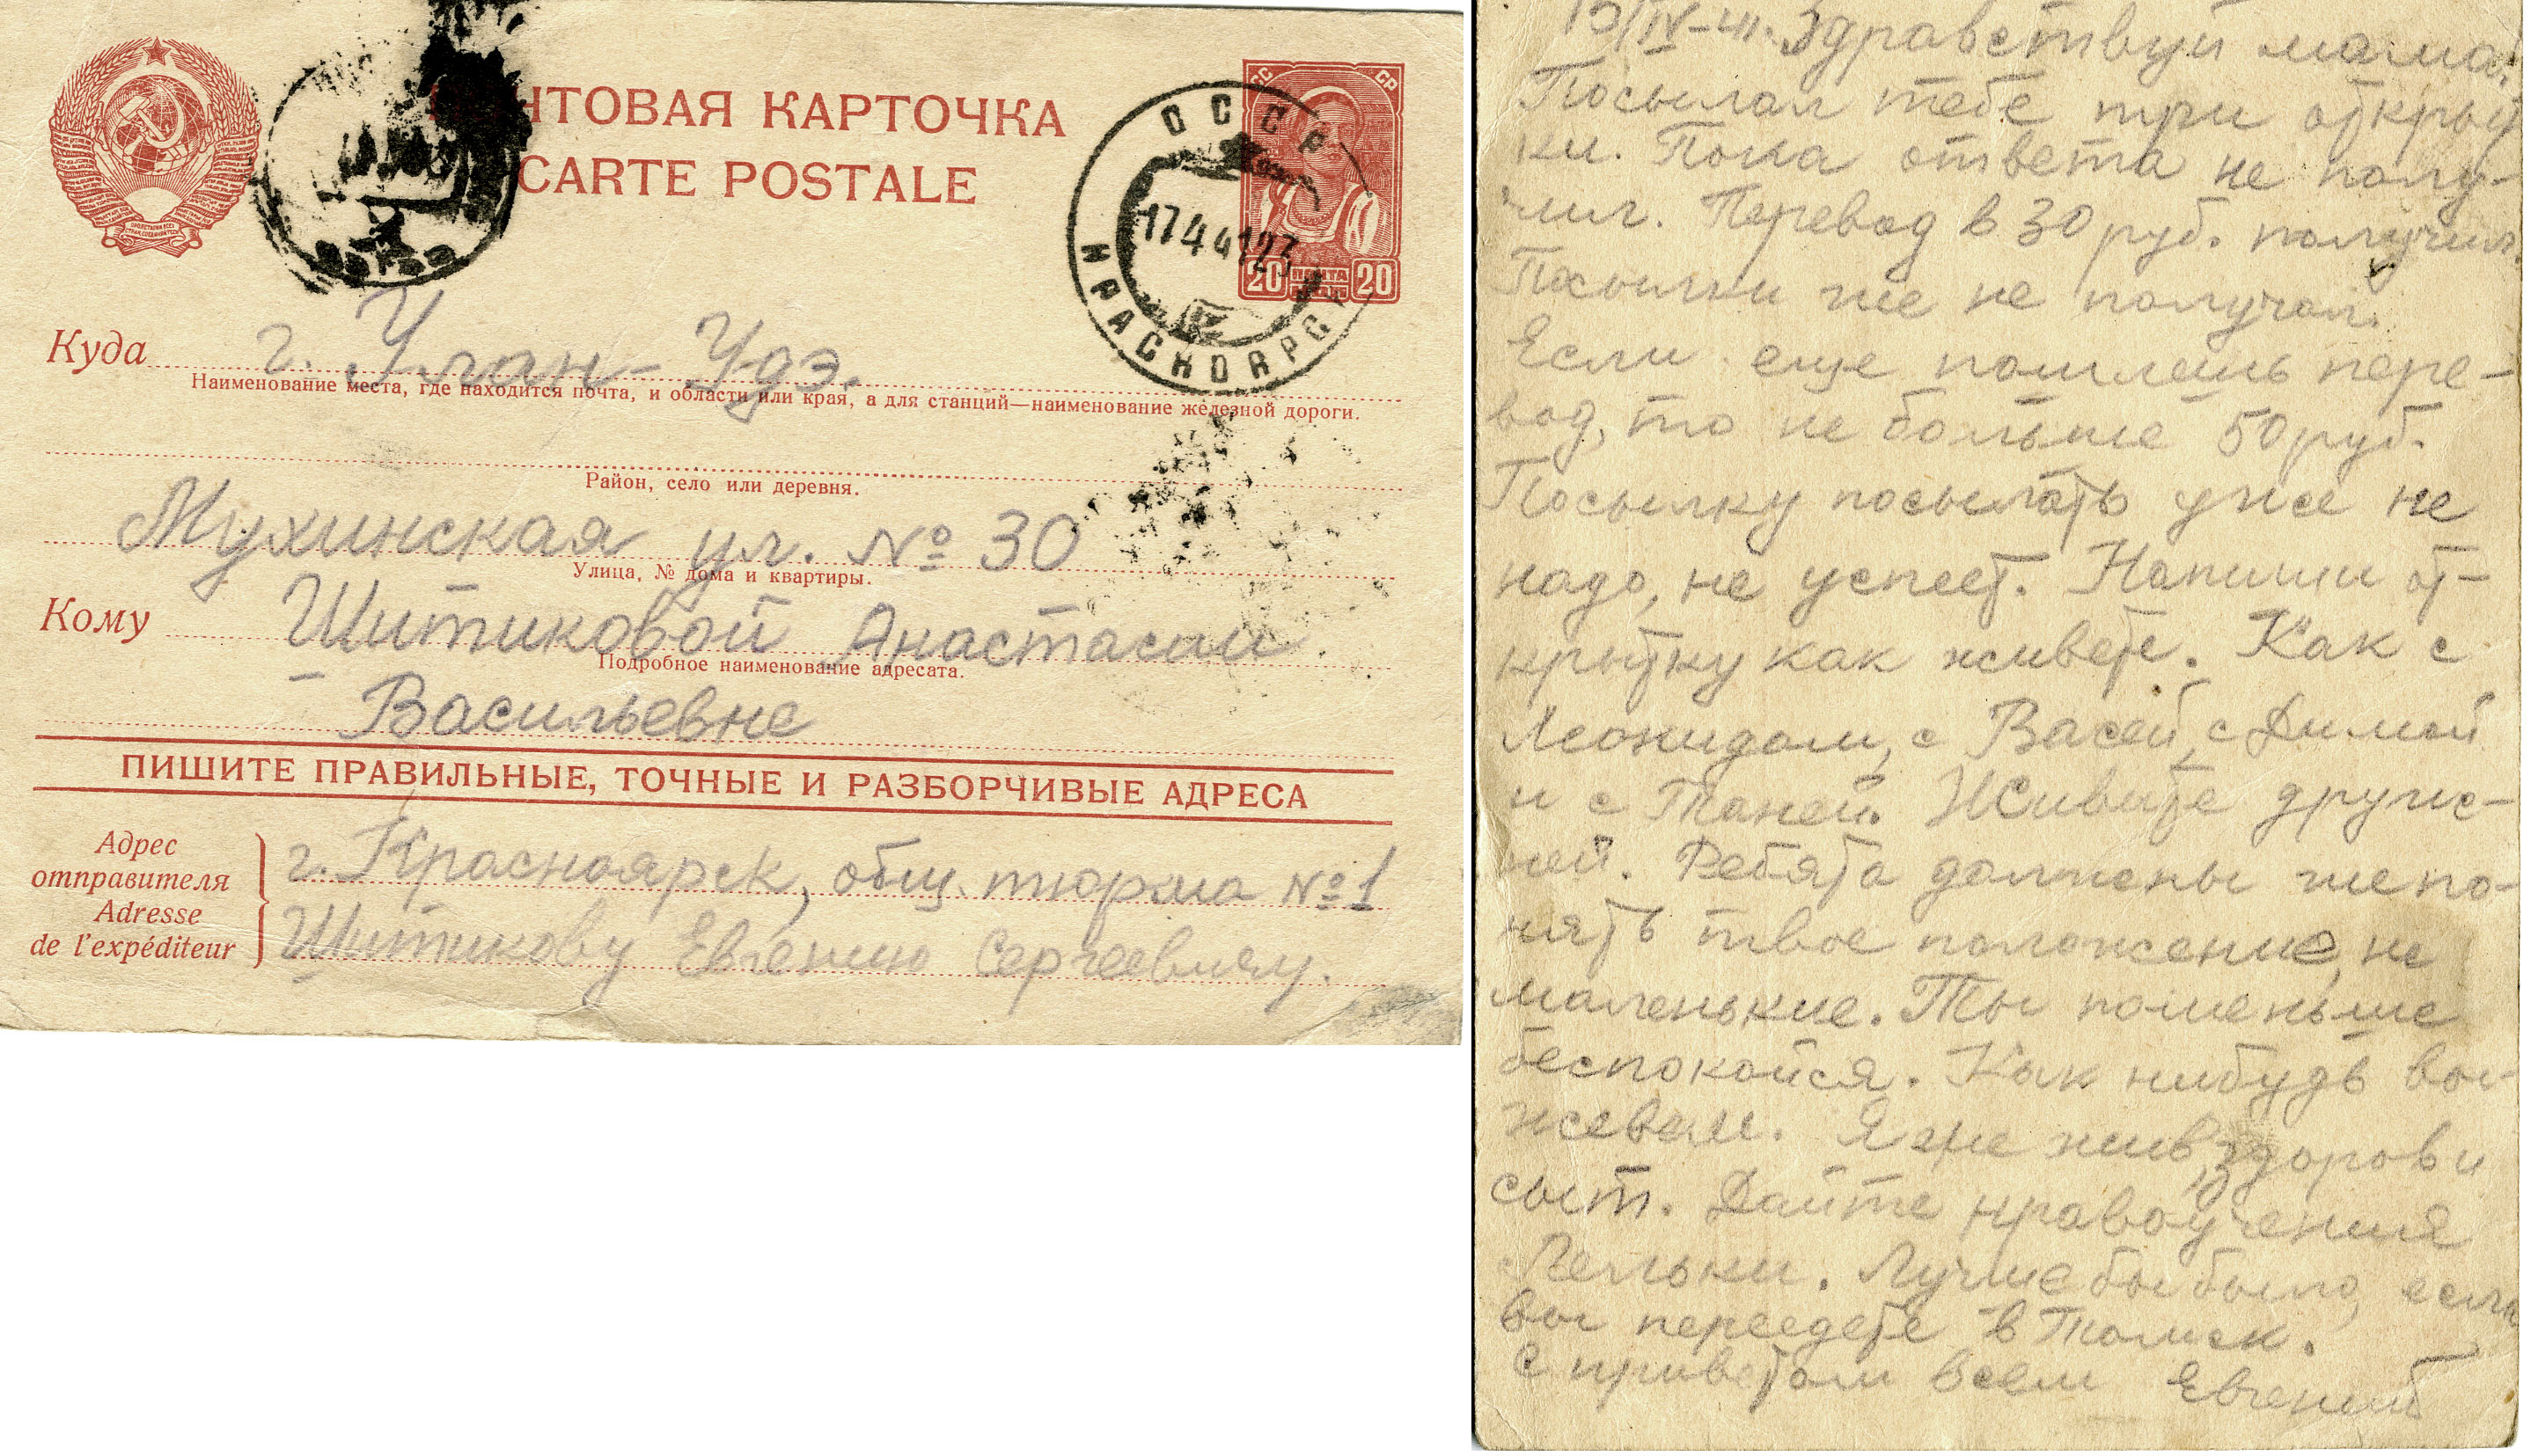 ПОЧТОВАЯ КАРТОЧКА
CARTE POSTALE
СССР
КРАСНОЯРСК
17 4 41 23
СС СР
20 ПОЧТА 20
Куда г. Улан-Удэ.
Наименование места, где находится почта, и области или края, а для станций—наименование железной дороги.
Район, село или деревня.
Мухинская ул. № 30
Улица, № дома и квартиры.
Кому Шитиковой Анастасии
Подробное наименование адресата.
Васильевне
ПИШИТЕ ПРАВИЛЬНЫЕ, ТОЧНЫЕ И РАЗБОРЧИВЫЕ АДРЕСА
Адрес
отправителя
Adresse
de l'expéditeur
г. Красноярск, общ. тюрьма № 1
Шитикову Евгению Сергеевичу.
Здравствуй мама.
Посылал тебе три открыт
ки. Пока ответа не полу-
чил. Перевод в 30 руб. получил.
Посылки же не получал.
Если еще пошлешь пере-
вод, то не больше 50 руб.
Посылку посылать уже не
надо, не успеет. Напиши от-
крытку как живете. Как с
Леонидом, с Васей, с Димой
и с Таней. Живите друж-
ней. Ребята должны же по-
нять твое положение, не
маленькие. Ты поменьше
беспокойся. Как нибудь вы-
живем. Я же жив, здоров и
сыт. Дайте нравоучения
Лельки. Лучше бы было, если
вы переедете в Томск.
С приветом всем Евгений